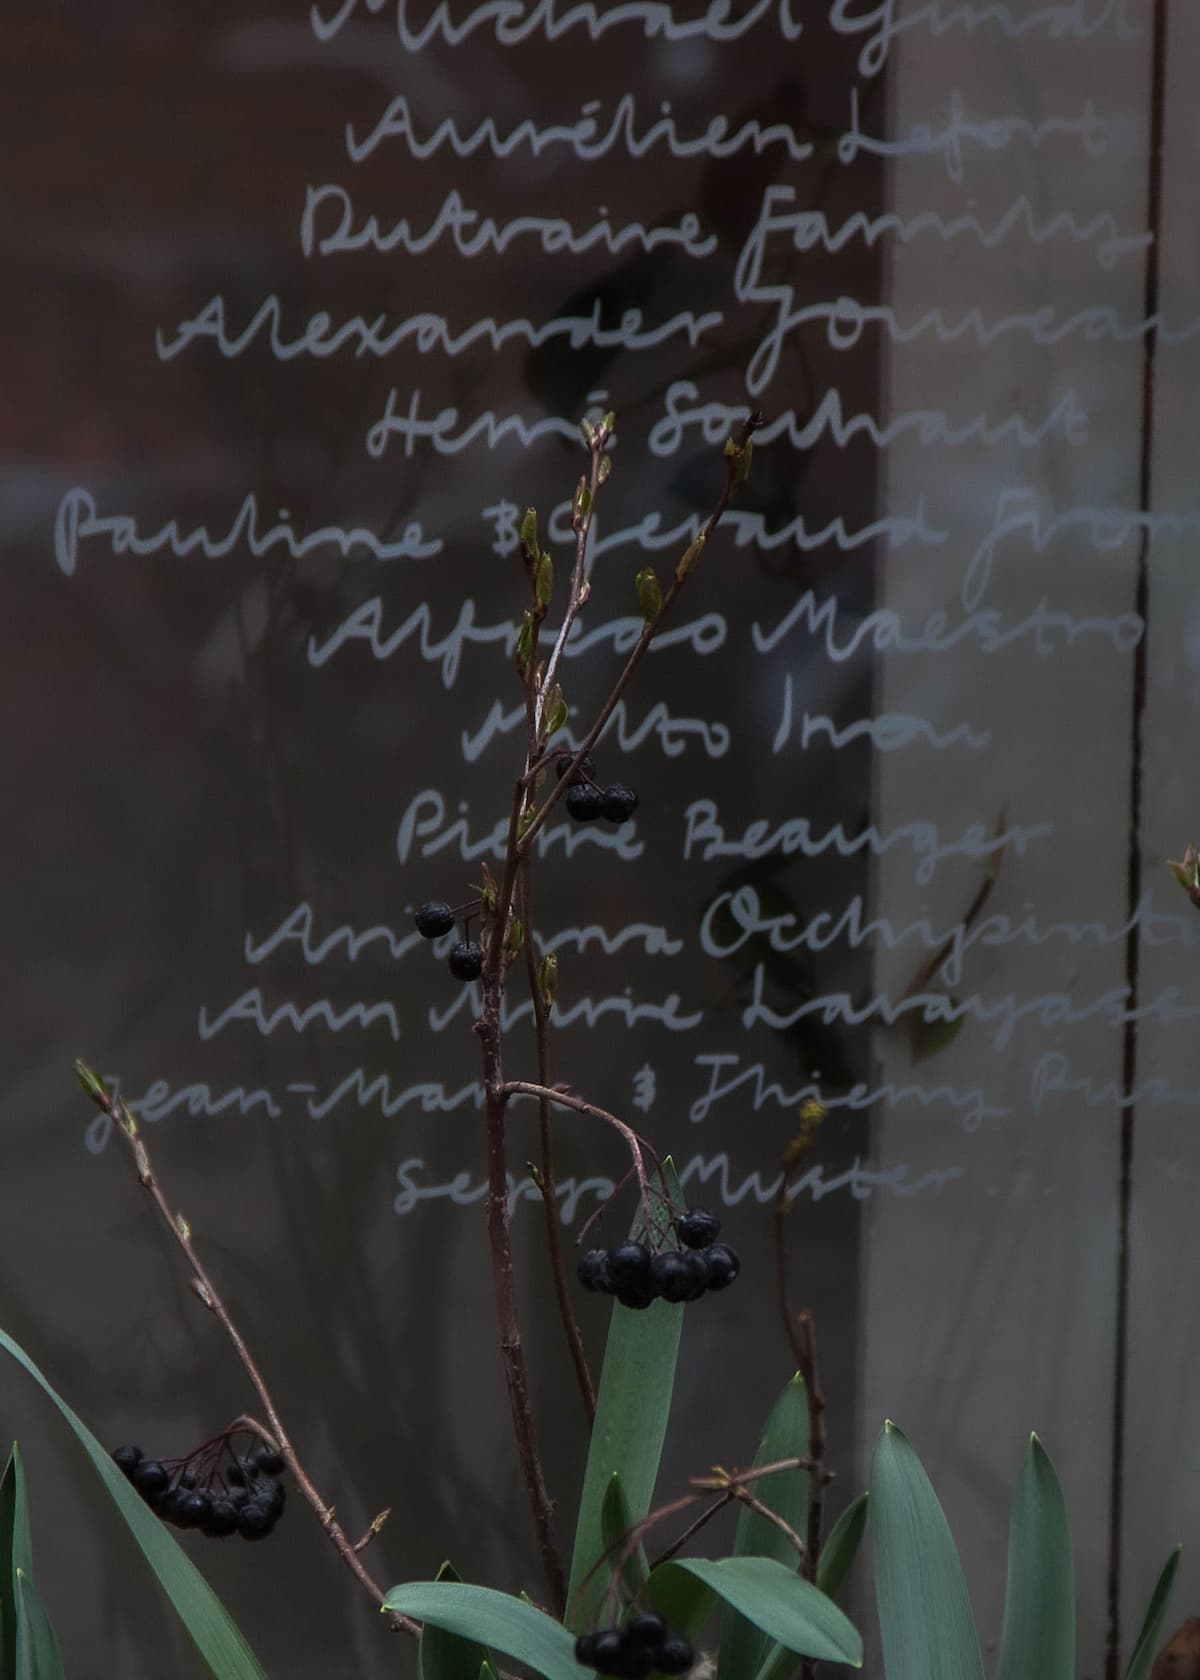 Michael Gindl
Aurélien Lefort
Dutraive Family
Alexander Jouveau
Hervé Souhaut
Pauline & Geraud From
Alfredo Maestro
Milto Inou
Pierre Beauger
Arianna Occhipinti
Ann Marie Lavaysse
Jean-Marc & Thierry Puz
Sepp Muster...